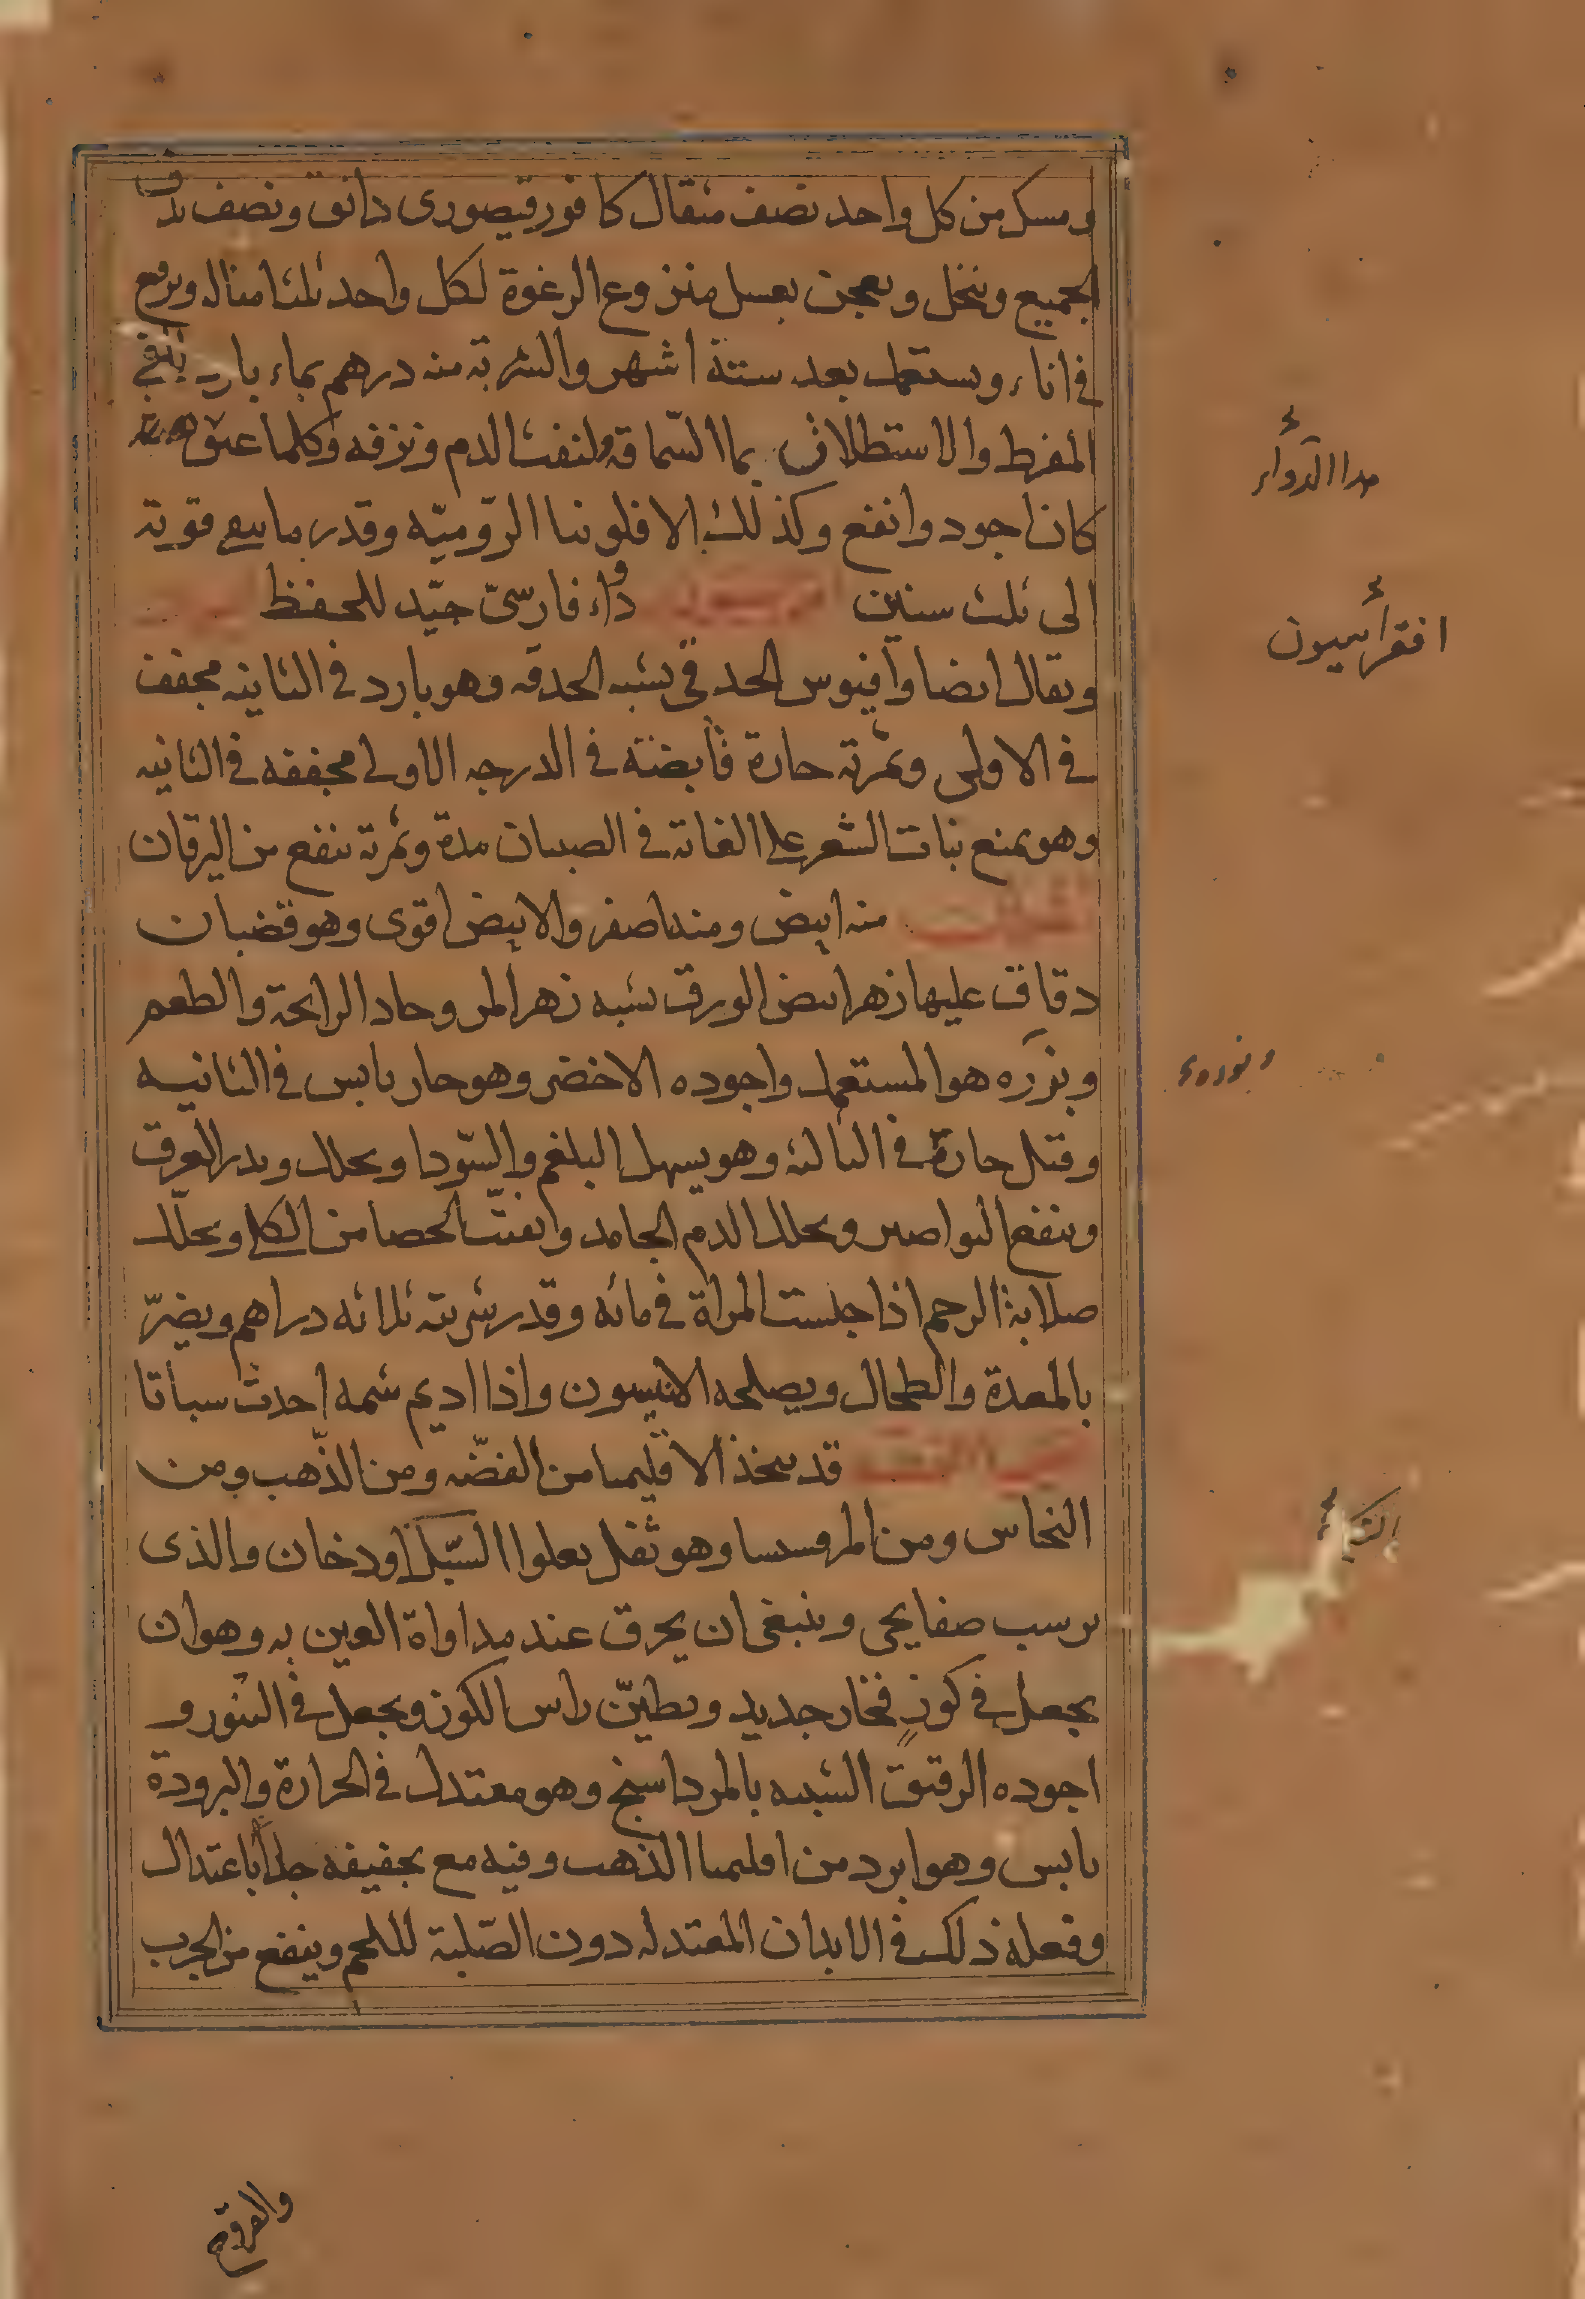 ومسك من كل واحد نصف مثقال كافور قيصورى دانق ونصف يدق
الجميع وينخل ويعجن بعسل منزوع الرغوة لكل واحد ثلثا مثاله ويرفع
فى اناء ويستعمل بعد ستة اشهر والشربة منه درهم بماء بارد
المفرط والاستطلاق بما السماق ولنفث الدم ونزفه وكلما عتق هذا
كان اجود وانفع وكذلك الافلونيا الرومية وقدر ما يبقى قوته
الى ثلث سنين دواء فارسى جيد للحفظ
ويقال ايضا وافيوس الحدقى يشبه الحدقه وهو بارد فى الثانيه مجفف
فى الاولى وثمرته حارة قابضة فى الدرجه الاولى مجففه فى الثانيه
وهو يمنع نبات الشعر على العانة فى الصبيان مدة وثمرته تنفع من اليرقان
منه ابيض ومنه اصفر والابيض اقوى وهو قضبان
دقاق عليها زهر ابيض الورق يشبه زهر المر وحاد الرايحة والطعم
وبزره هو المستعمل واجوده الاخضر وهو حار يابس فى الثانيه
وقيل حارة فى الثالثه وهو يسهل البلغم والسودا ويحلل ويدر العرق
وينفع النواصير ويحلل الدم الجامد ويفتت الحصا من الكلا ويحلل
صلابة الرحم اذا جلست المراة فى مائه وقدر شربته ثلاثه دراهم ويضر
بالمعدة والطحال ويصلحه الانيسون واذا اديم شمه احدث سباتا
قد يتخذ الاقليميا من الفضه ومن الذهب ومن
النحاس ومن المرقسيسا وهو ثفل يعلوا السبك او دخان والذى
يرسب صفايحى وينبغى ان يحرق عند مداواة العين به وهو ان
يجعل فى كوز فخار جديد ويطين راس الكوز ويجعل فى التنور و
اجوده الرقيق الشبيه بالمرداسنج وهو معتدل فى الحرارة والبرودة
يابس وهو ابرد من اقليميا الذهب وفيه مع تجفيفه جلاء باعتدال
وفعله ذلك فى الابدان المعتدله دون الصلبة للحم وينفع من الجرب
هذا الدواء
افقراسيون
والقروح